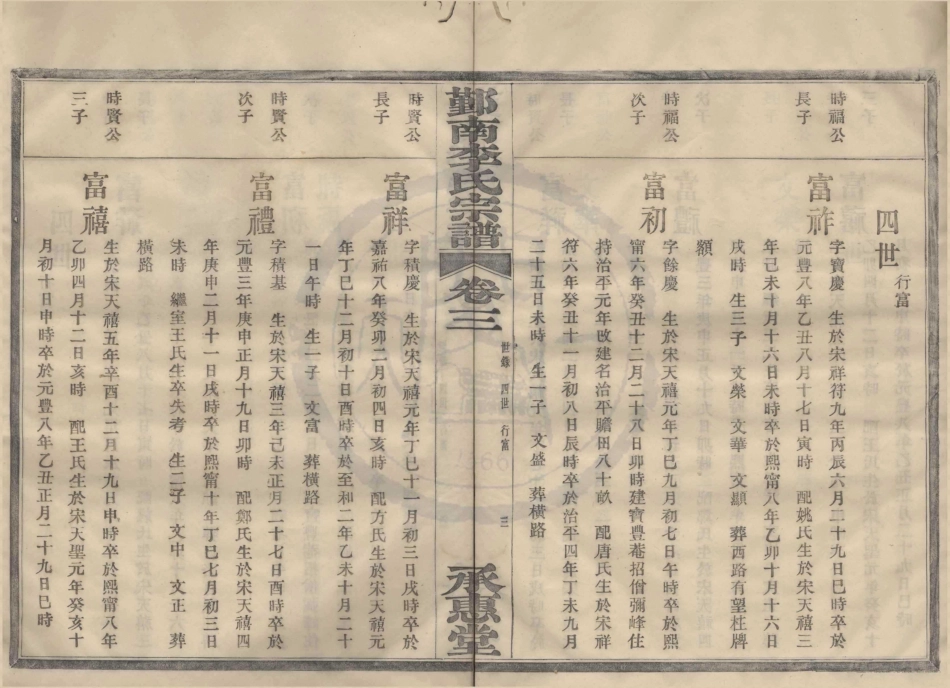 四世 行富
時福公
長子
富祚
字寶慶 生於宋祥符九年丙辰六月二十九日巳時卒於
元豐八年乙丑八月十七日寅時 配姚氏生於宋天禧三
年己未十月十六日未時卒於熙甯八年乙卯十月十六日
戌時 生三子 文榮 文華 文顯 葬西路有望柱牌
額
時福公
次子
富初
字餘慶 生於宋天禧元年丁巳九月初七日午時卒於熙
甯六年癸丑十二月二十八日卯時建寶豐菴招僧彌峰住
持治平元年改建名治平贍田八十畝 配唐氏生於宋祥
符六年癸丑十一月初八日辰時卒於治平四年丁未九月
二十五日未時 生一子 文盛 葬橫路
鄞南李氏宗譜 卷三
世錄 四世 行富 三
承惠堂
時賢公
長子
富祥
字積慶 生於宋天禧元年丁巳十一月初三日戌時卒於
嘉祐八年癸卯二月初四日亥時 配方氏生於宋天禧元
年丁巳十二月初十日酉時卒於至和二年乙未十月二十
一日午時 生一子 文富 葬橫路
時賢公
次子
富禮
字積基 生於宋天禧三年己未正月二十七日酉時卒於
元豐三年庚申正月十九日卯時 配鄭氏生於宋天禧四
年庚申二月十一日戌時卒於熙甯十年丁巳七月初三日
未時 繼室王氏生卒失考 生二子 文中 文正 葬
橫路
時賢公
三子
富禧
生於宋天禧五年辛酉十二月十九日申時卒於熙甯八年
乙卯四月十二日亥時 配王氏生於宋天聖元年癸亥十
月初十日申時卒於元豐八年乙丑正月二十九日巳時